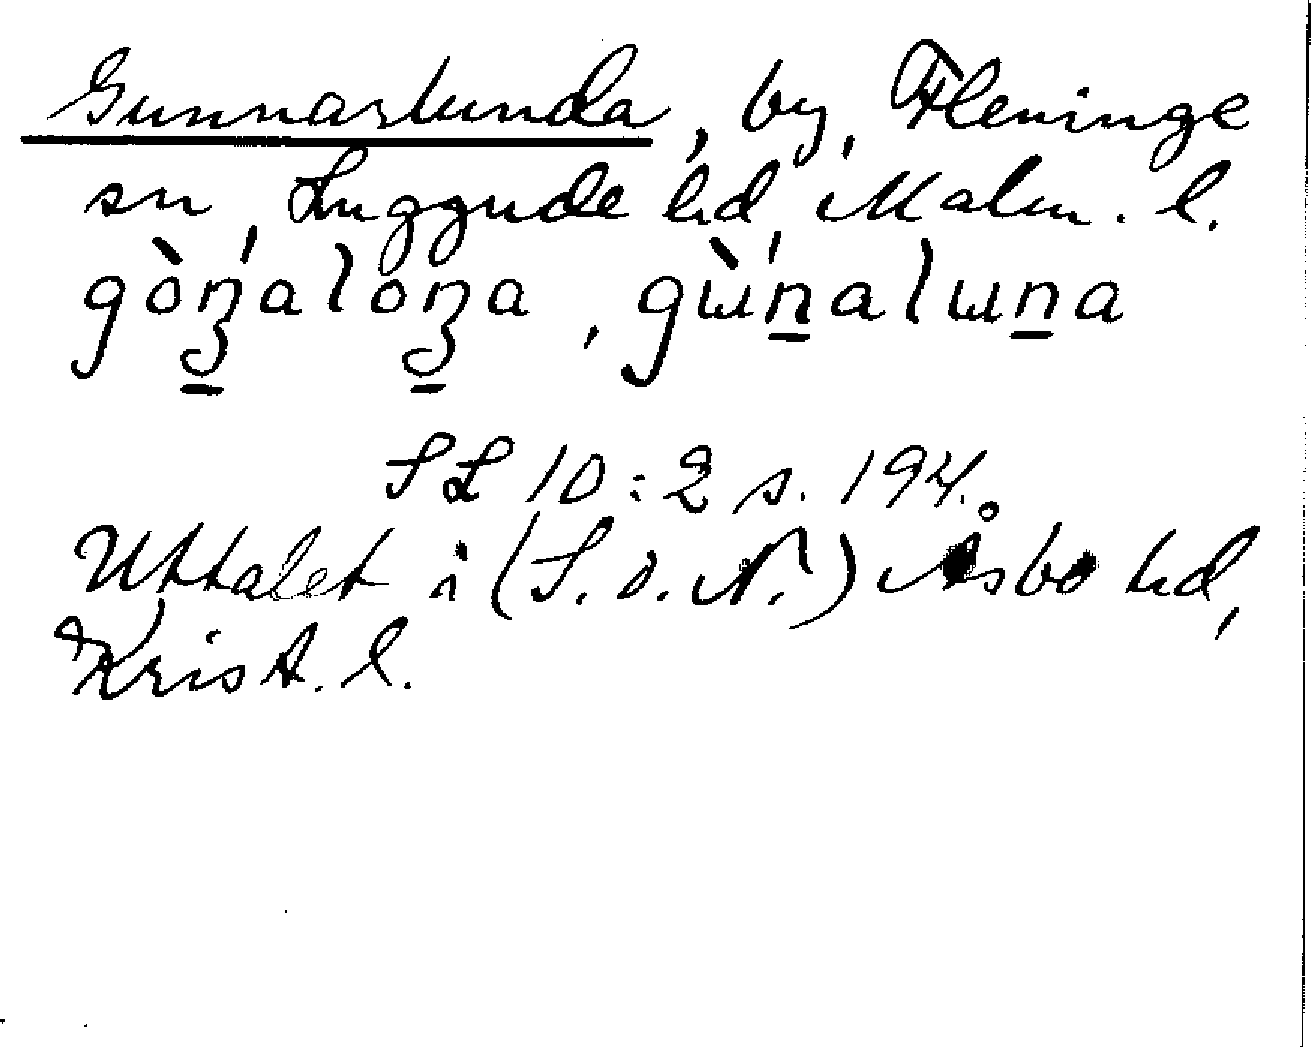 Gunnarlunda, by, Fleninge
sn, Luggude hd, Malm. l.
gòn̠alon̠a, gɯ̀n̠alɯn̠a
SL 10:2 s. 194.
Uttalet i (S. o. N.) Åsbo hd,
Krist. l.